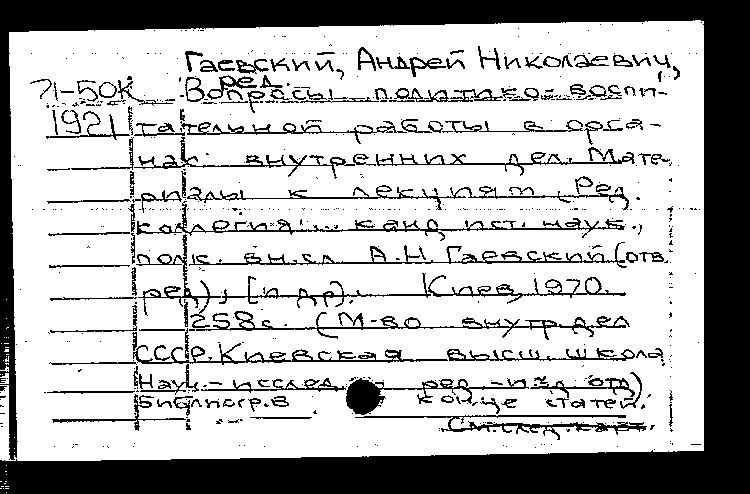 Гаевский, Андрей Николаевич,
ред.
71-50К Вопросы политико-воспи-
1921 тательной работы в орга-
нах внутренних дел. Мате-
риалы к лекциям (Ред.
коллегия:... канд. ист. наук.,
полк. вн. сл. А.Н. Гаевский (отв.
ред), [и др). Киев, 1970.
258 с. (М-во внутр. дел
СССР. Киевская высш. школа
Науч.-исслед. и ред.-изд. отд)
Библиогр. в конце статей.
См. след. карт.